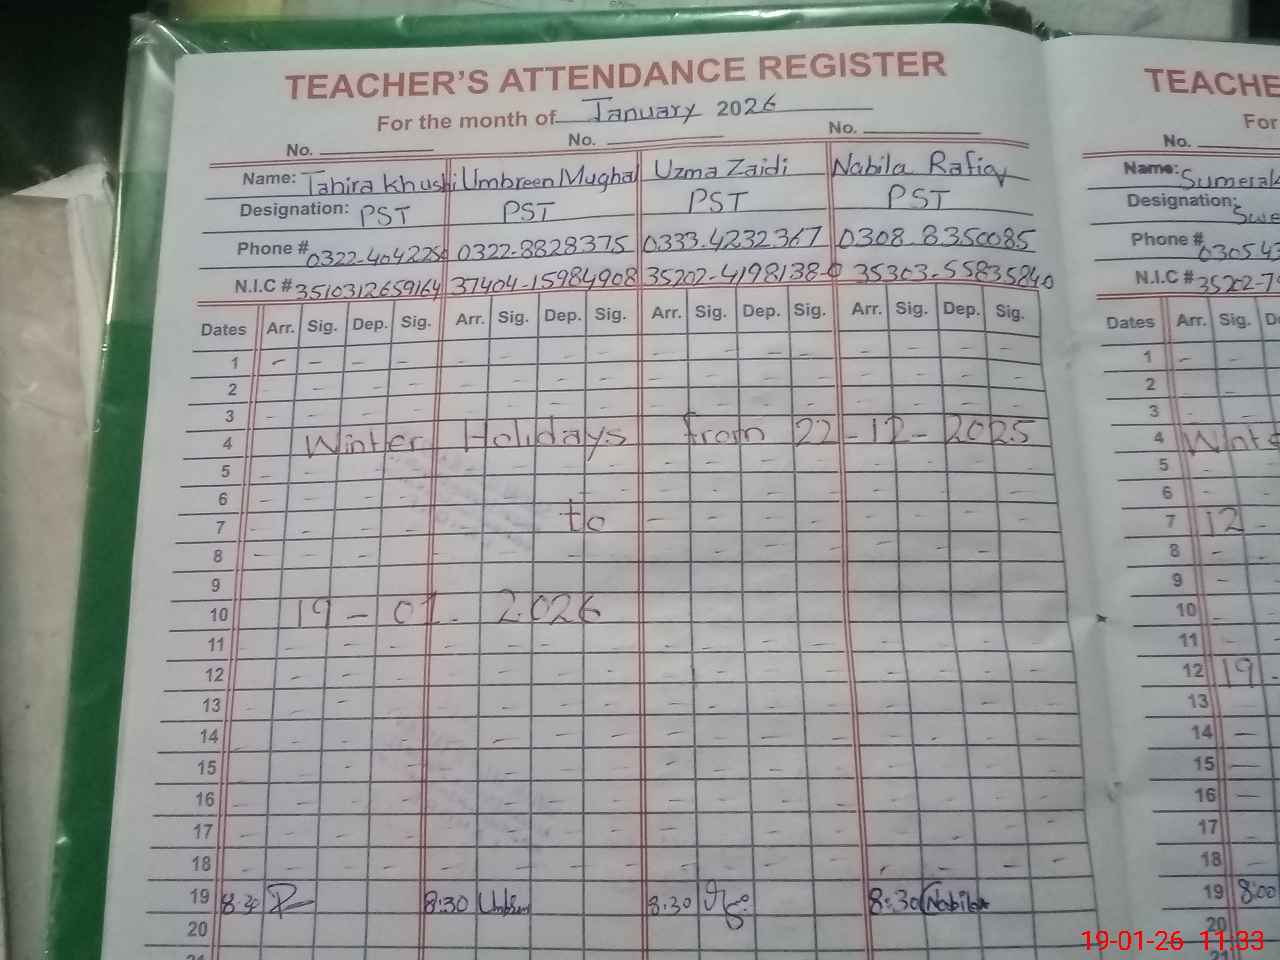 TEACHER'S ATTENDANCE REGISTER
For the month of January 2026
No. No. No.
Name: Tahira Khushi Umbreen Mughal Uzma Zaidi Nabila Rafiq
Designation: PST PST PST PST
Phone # 0322-404225 0322-8828375 0333.4232367 0308 8350085
N.I.C # 3510312659164 37404-15984908 35202-4198138-0 35303-55835840
Dates Arr. Sig. Dep. Sig. Arr. Sig. Dep. Sig. Arr. Sig. Dep. Sig. Arr. Sig. Dep. Sig.
1
2
3
4 Winter Holidays from 22-12-2025
5
6
7 to
8
9
10 19-01-2026
11
12
13
14
15
16
17
18
19 8:30 8:30 8:30 8:30 Nabila
20
21
TEACHE
For
No.
Name: Sumerak
Designation: Swe
Phone # 0305 43
N.I.C # 35202-79
Dates Arr. Sig. D
1
2
3
4 Wnte
5
6
7 12
8
9
10
11
12 19
13
14
15
16
17
18
19 8:00
20
21
19-01-26 11:33